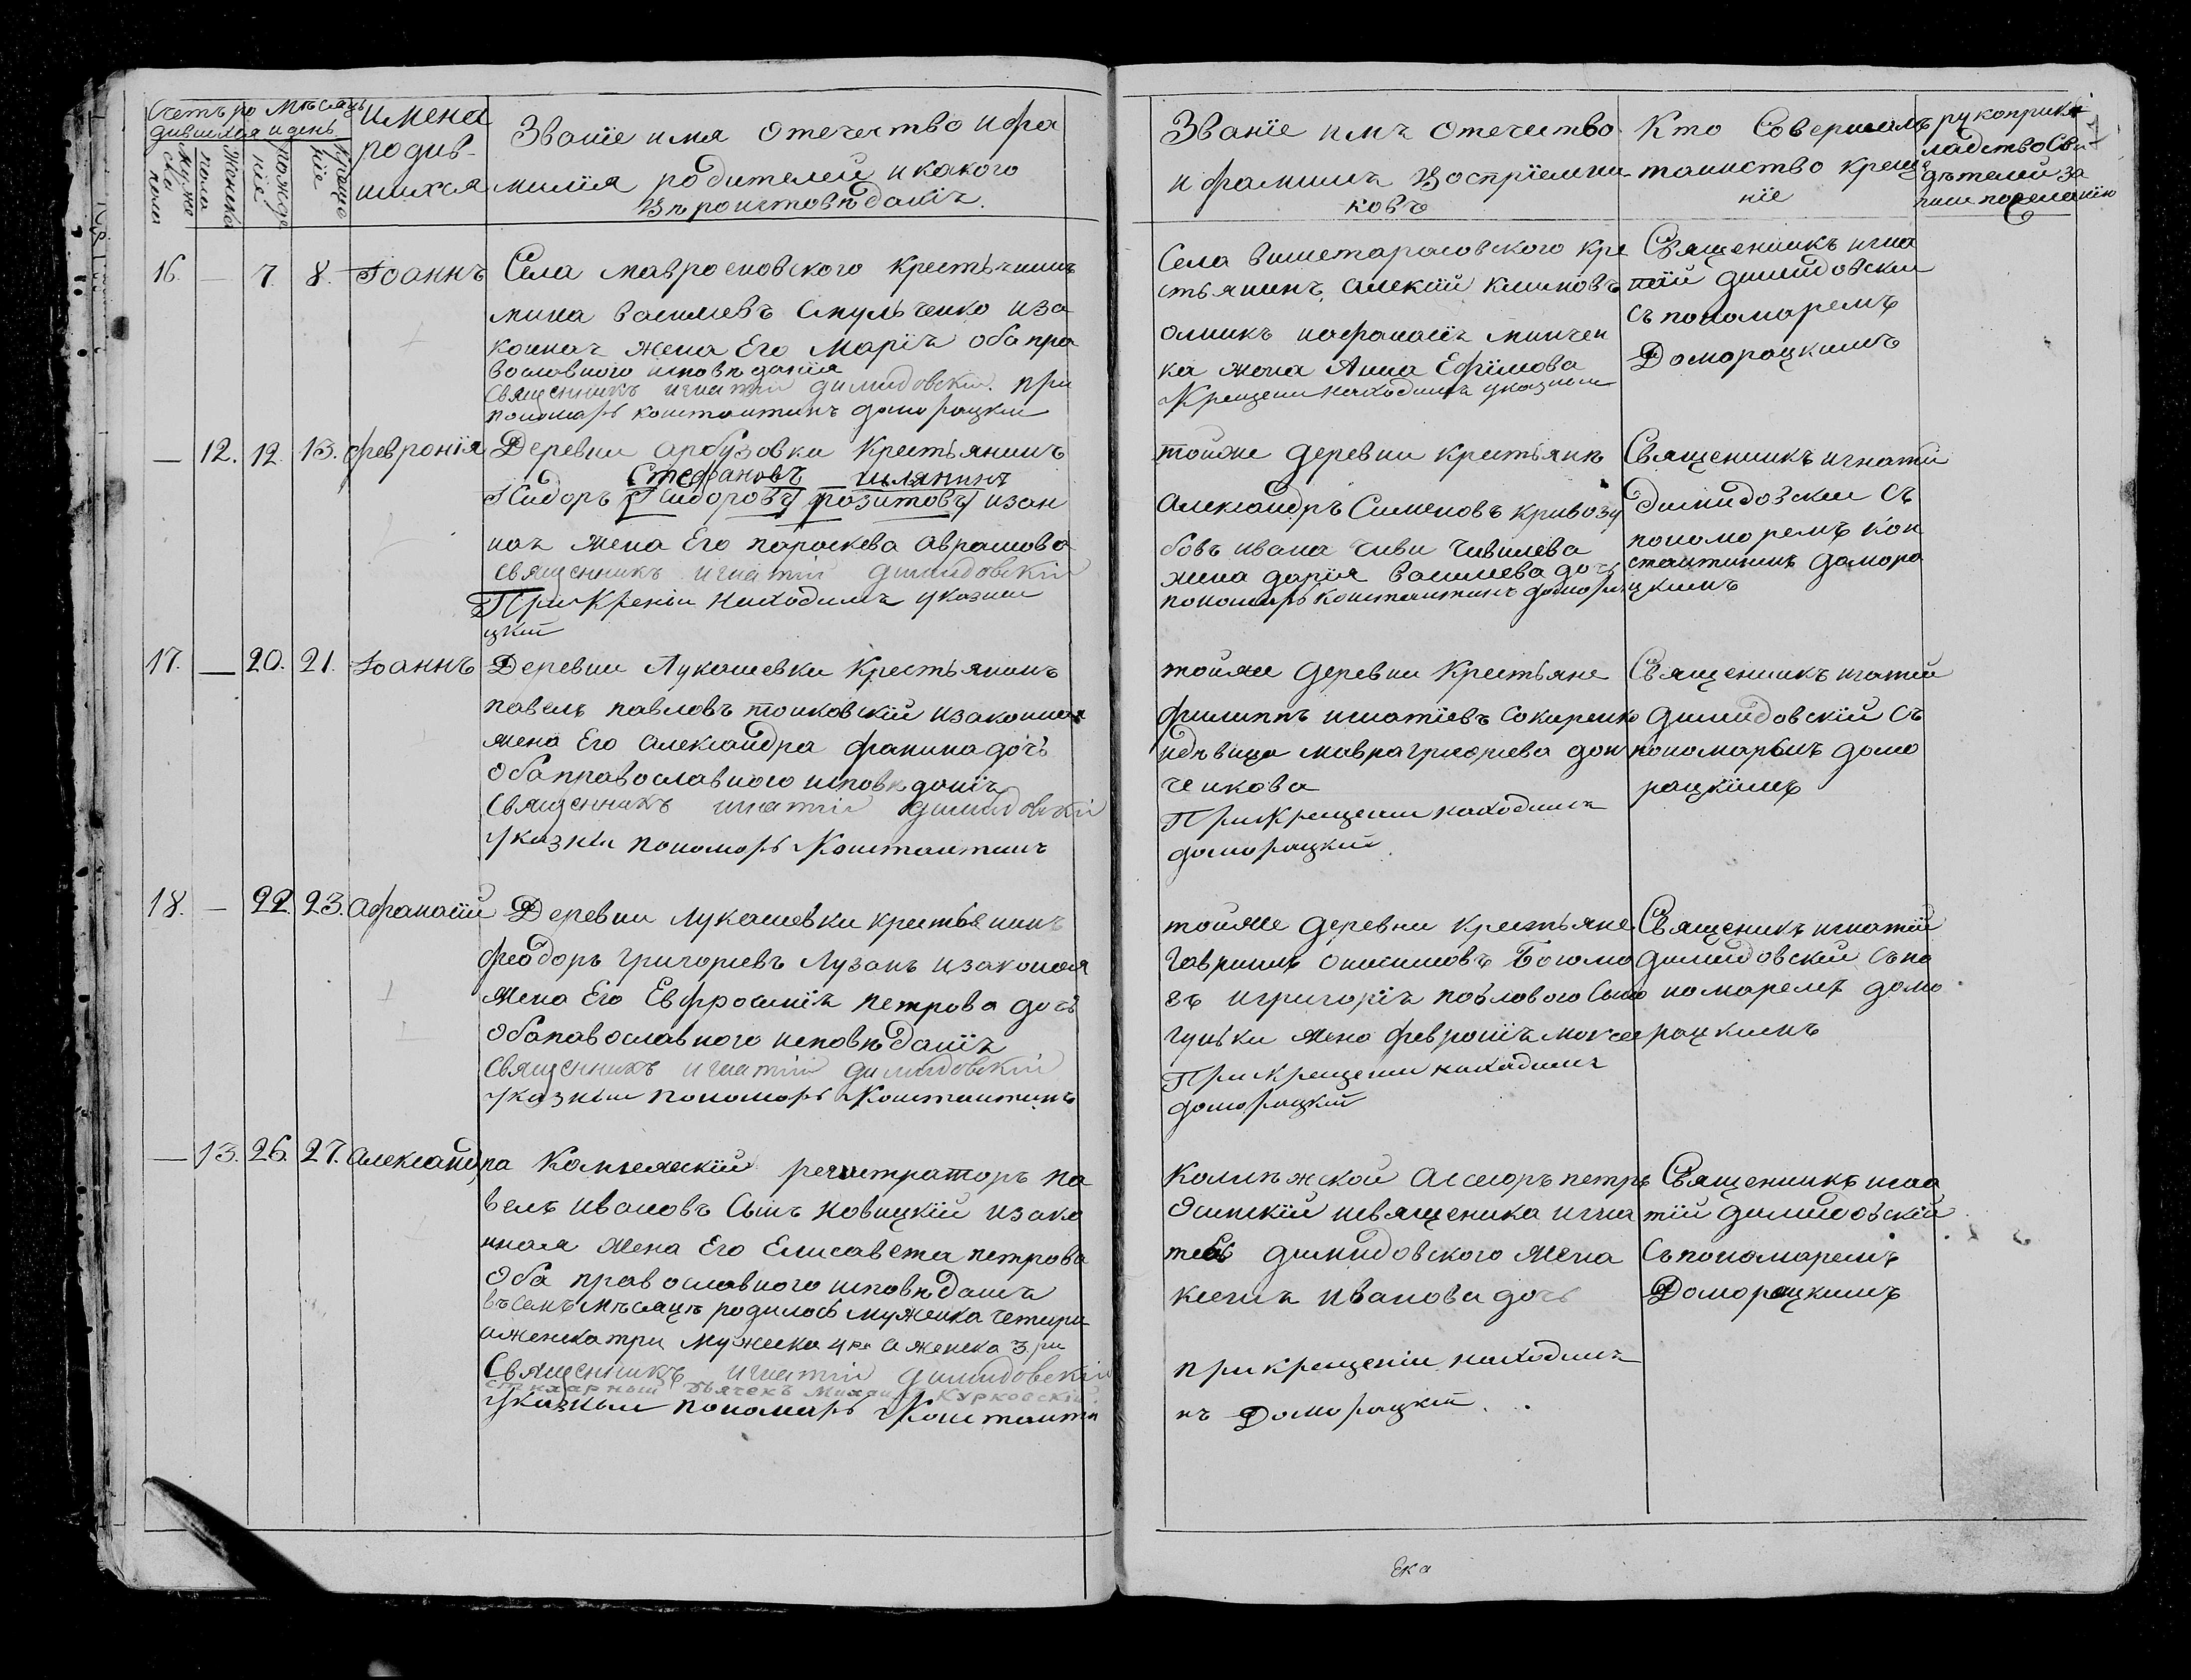 Счетъ ро
дившихся
Мѣсяць
и день
Имена
родив-
шихся
Званïе имя отечество и фа
милïя родителей и какого
вѣроисповѣданïя.
Мужеска пола
Женска пола
рожденïе
крещенïе
16. — 7. 8. Іоаннъ
Села мавроеновского крестьянинъ
мина васильевъ Смульченко иза
конная жена Его Марïя оба пра
вославного исповѣданïя
Священникъ игнатïй димидовскïй. при
пономарь константинъ доморацкïй
— 12. 12. 13. феоронïя
Деревни арбузовки Крестьянинъ
Стефановъ — шлянинъ
Исидоръ Исидоровъ розитовъ изан
ная жена Его параскева аврамова
Священникъ игнатïй димидовскïй
При Кренïи находился указнïй
цкïй
17. — 20. 21. Іоаннъ
Деревни Лукашевки Крестьянинъ
павелъ павловъ тонковскïй изаконная
жена Его александра фанина дочь
Оба православного исповѣданïя
Священникъ игнатïй димидовскïй
указный пономарь Константинъ
18. — 22. 23. афанасïй
Деревни лукашевки крестьянинъ
феодоръ григорïевъ Лузанъ изаконая
Жена Его Евфросинïя петрова дочь
Оба павославного исповѣданïя
Священникъ игнатïй димидовскïй
указный пономарь Константинъ
— 13. 26. 27. александра
Колежскïй регистраторъ па
велъ ивановъ Сынъ новицкïй изако
нная жена Его Елисавета петрова
Оба православного исповѣданïя
въ семъ мѣсяцѣ родилось мужеска четири
а женска три мужеска 4ре а женска 3ри
Священникъ игнатïй димидовскïй
стихарный дьячекъ Михаилъ Курковскïй
указный пономарь Константи
Званïе имя отечество
и фамилïя воспрïемни-
ковъ
Кто совершалъ
таинство креще
нïе
рукоприкла
ладство сви
дѣтелей за
писи по желанïю
Села вишетарасовского кре
стьянинъ алексïй климовъ
омикъ иафанасïя минчен
ка жена Анна Ефимова
Крещени находился указный
Священникъ игна
тïй димидовскïй
съ пономаремъ
Доморацкимъ
тойже деревни крестьянъ
александръ Сименовъ кривозу
бовъ ивана чиви чивилева
жена дарïя васильева дочь
пономарь константинъ домора
Священникъ игнатïй
Димидовскïй съ
пономоремъ Кон
стантиномъ дамора
цкимъ
тойже деревни Крестьяне
филиппъ игнатïевъ Сокиренко
идѣвица мавра григорïева дон
ченкова
При крещенïи находился
доморацкïй.
Священникъ игатïй
димидовскïй съ
пономарьмъ домо
рацкïимъ
тойже деревни крестьяне
гаврïилъ онисимовъ Богома
зъ и григорïя павлового Сына
гуньки жена февронïя моисее
При крещенïи находился
доморацкïй
Священикъ игнатïй
димидовскïй съ по
номаремъ домо
рацкимъ
Колежской ассесоръ петръ
Осипскïй исвященика игна
тïя димидовского жена
ксенïя иванова дочь
при крещенïи находился
нъ Доморацкïй.
Священникъ игна
тïй димидовскïй
съ пономаремъ
Доморацкимъ
Ека